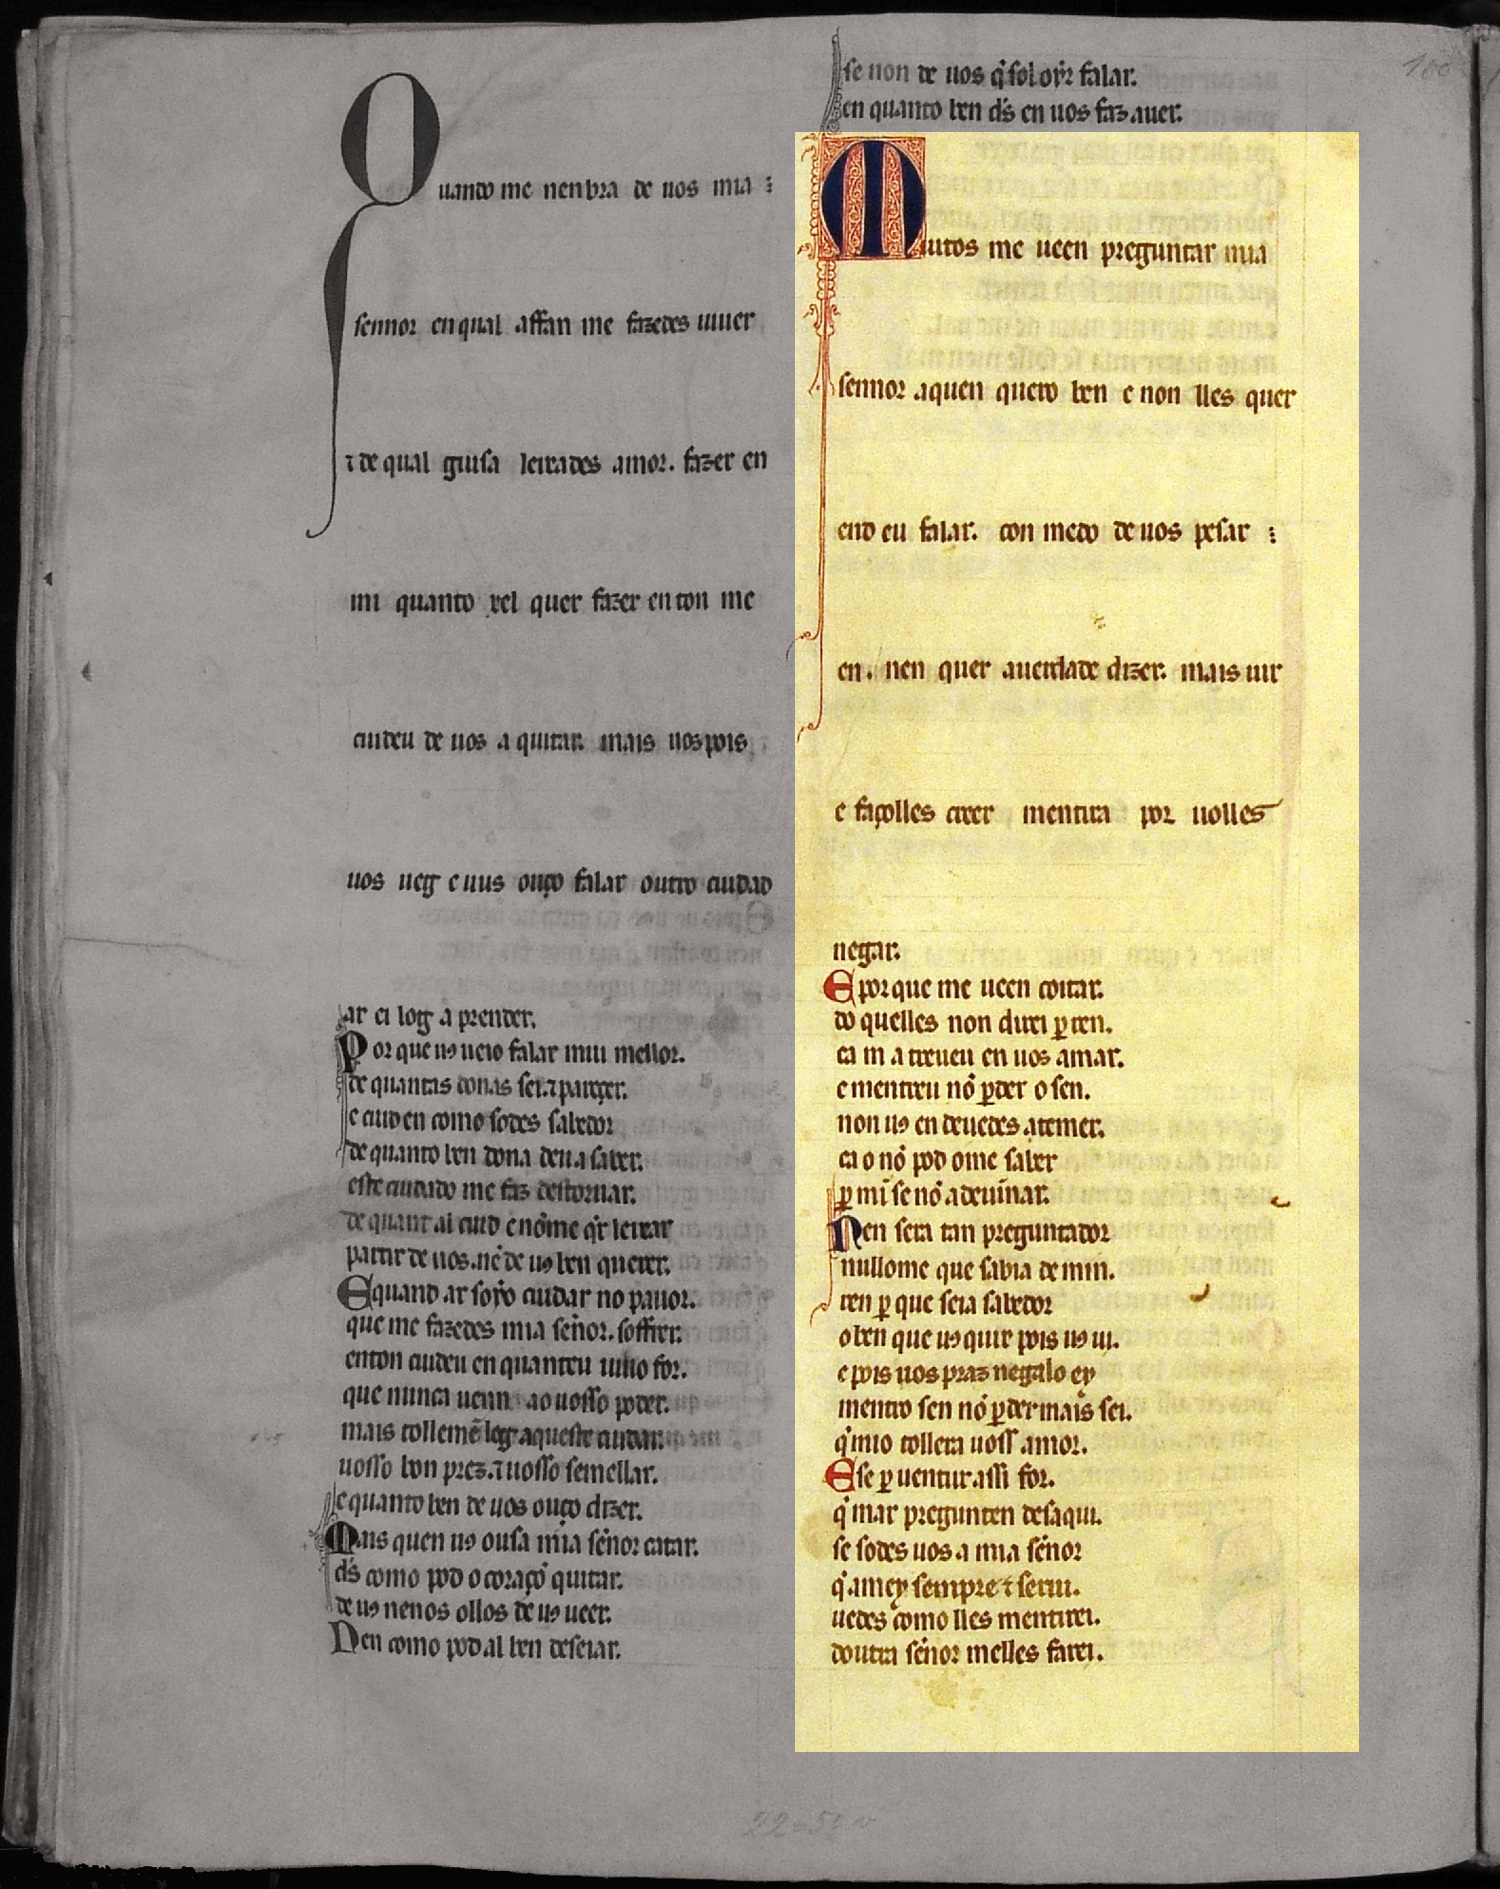 Quando me nenbra de uos mia :
sennor en qual affan me fazedes uiuer
⁊ de qual guisa leixades amor. fazer en
mi quanto xel quer fazer enton me
cuideu de uos a quitar. mais uos pois
uos ueg e uus ouço falar outro cuidad
ar ei log a prender.
Por que uꝯ ueio falar mui mellor.
de quantas donas sei. ⁊ pareçer.
e cuid en como sodes sabedor
de quanto ben dona deu a saber.
este cuidado me faz destoruar.
de quant al cuid e nõ me q̇r leixar
partir de uos. nẽ de uꝯ ben querer.
E quand ar soyo cuidar no pauor.
que me fazedes mia señor. soffrer.
enton cuideu en quanteu uiuo for.
que nunca uenn ao uosso poder.
mais tolleme log aqueste cuidar.
uosso bon prez. ⁊ uosso semellar.
e quanto ben de uos ouço dizer.
Mais quen uꝯ ousa mia señor catar.
dꝭ como pod o coraçõ quitar.
de uꝯ nen os ollos de uꝯ ueer.
Nen como pod al ben deseiar.
se non de uos q̇ sol oyr falar.
en quanto ben dꝭ en uos faz auer.
Muitos me ueen preguntar mia
sennor a quen quero ben e non lles quer
end eu falar. con medo de uos pesar :
en. nen quer a uerdade dizer. mais iur
e façolles creer mentira por uolles
negar.
E por que me ueen coitar.
do quelles non direi ꝑ ren.
ca m atreueu en uos amar.
e mentreu nõ ꝑder o sen.
non uꝯ en deuedes a temer.
ca o nõ pod ome saber
ꝑ mĩ se nõ adeuĩnar.
Nen sera tan preguntador
nullome que sabia de min.
ren ꝑ que seia sabedor
o ben que uꝯ quir pois uꝯ ui.
e pois uos praz negalo ey
mentro sen nõ ꝑder mais sei.
q̇ mio tollera uoss amor.
E se ꝑ uentur assi for.
q̇ mar pregunten desaqui.
se sodes uos a mia señor
q̇ amey sempre ⁊ serui.
uedes como lles mentirei.
doutra señor melles farei.